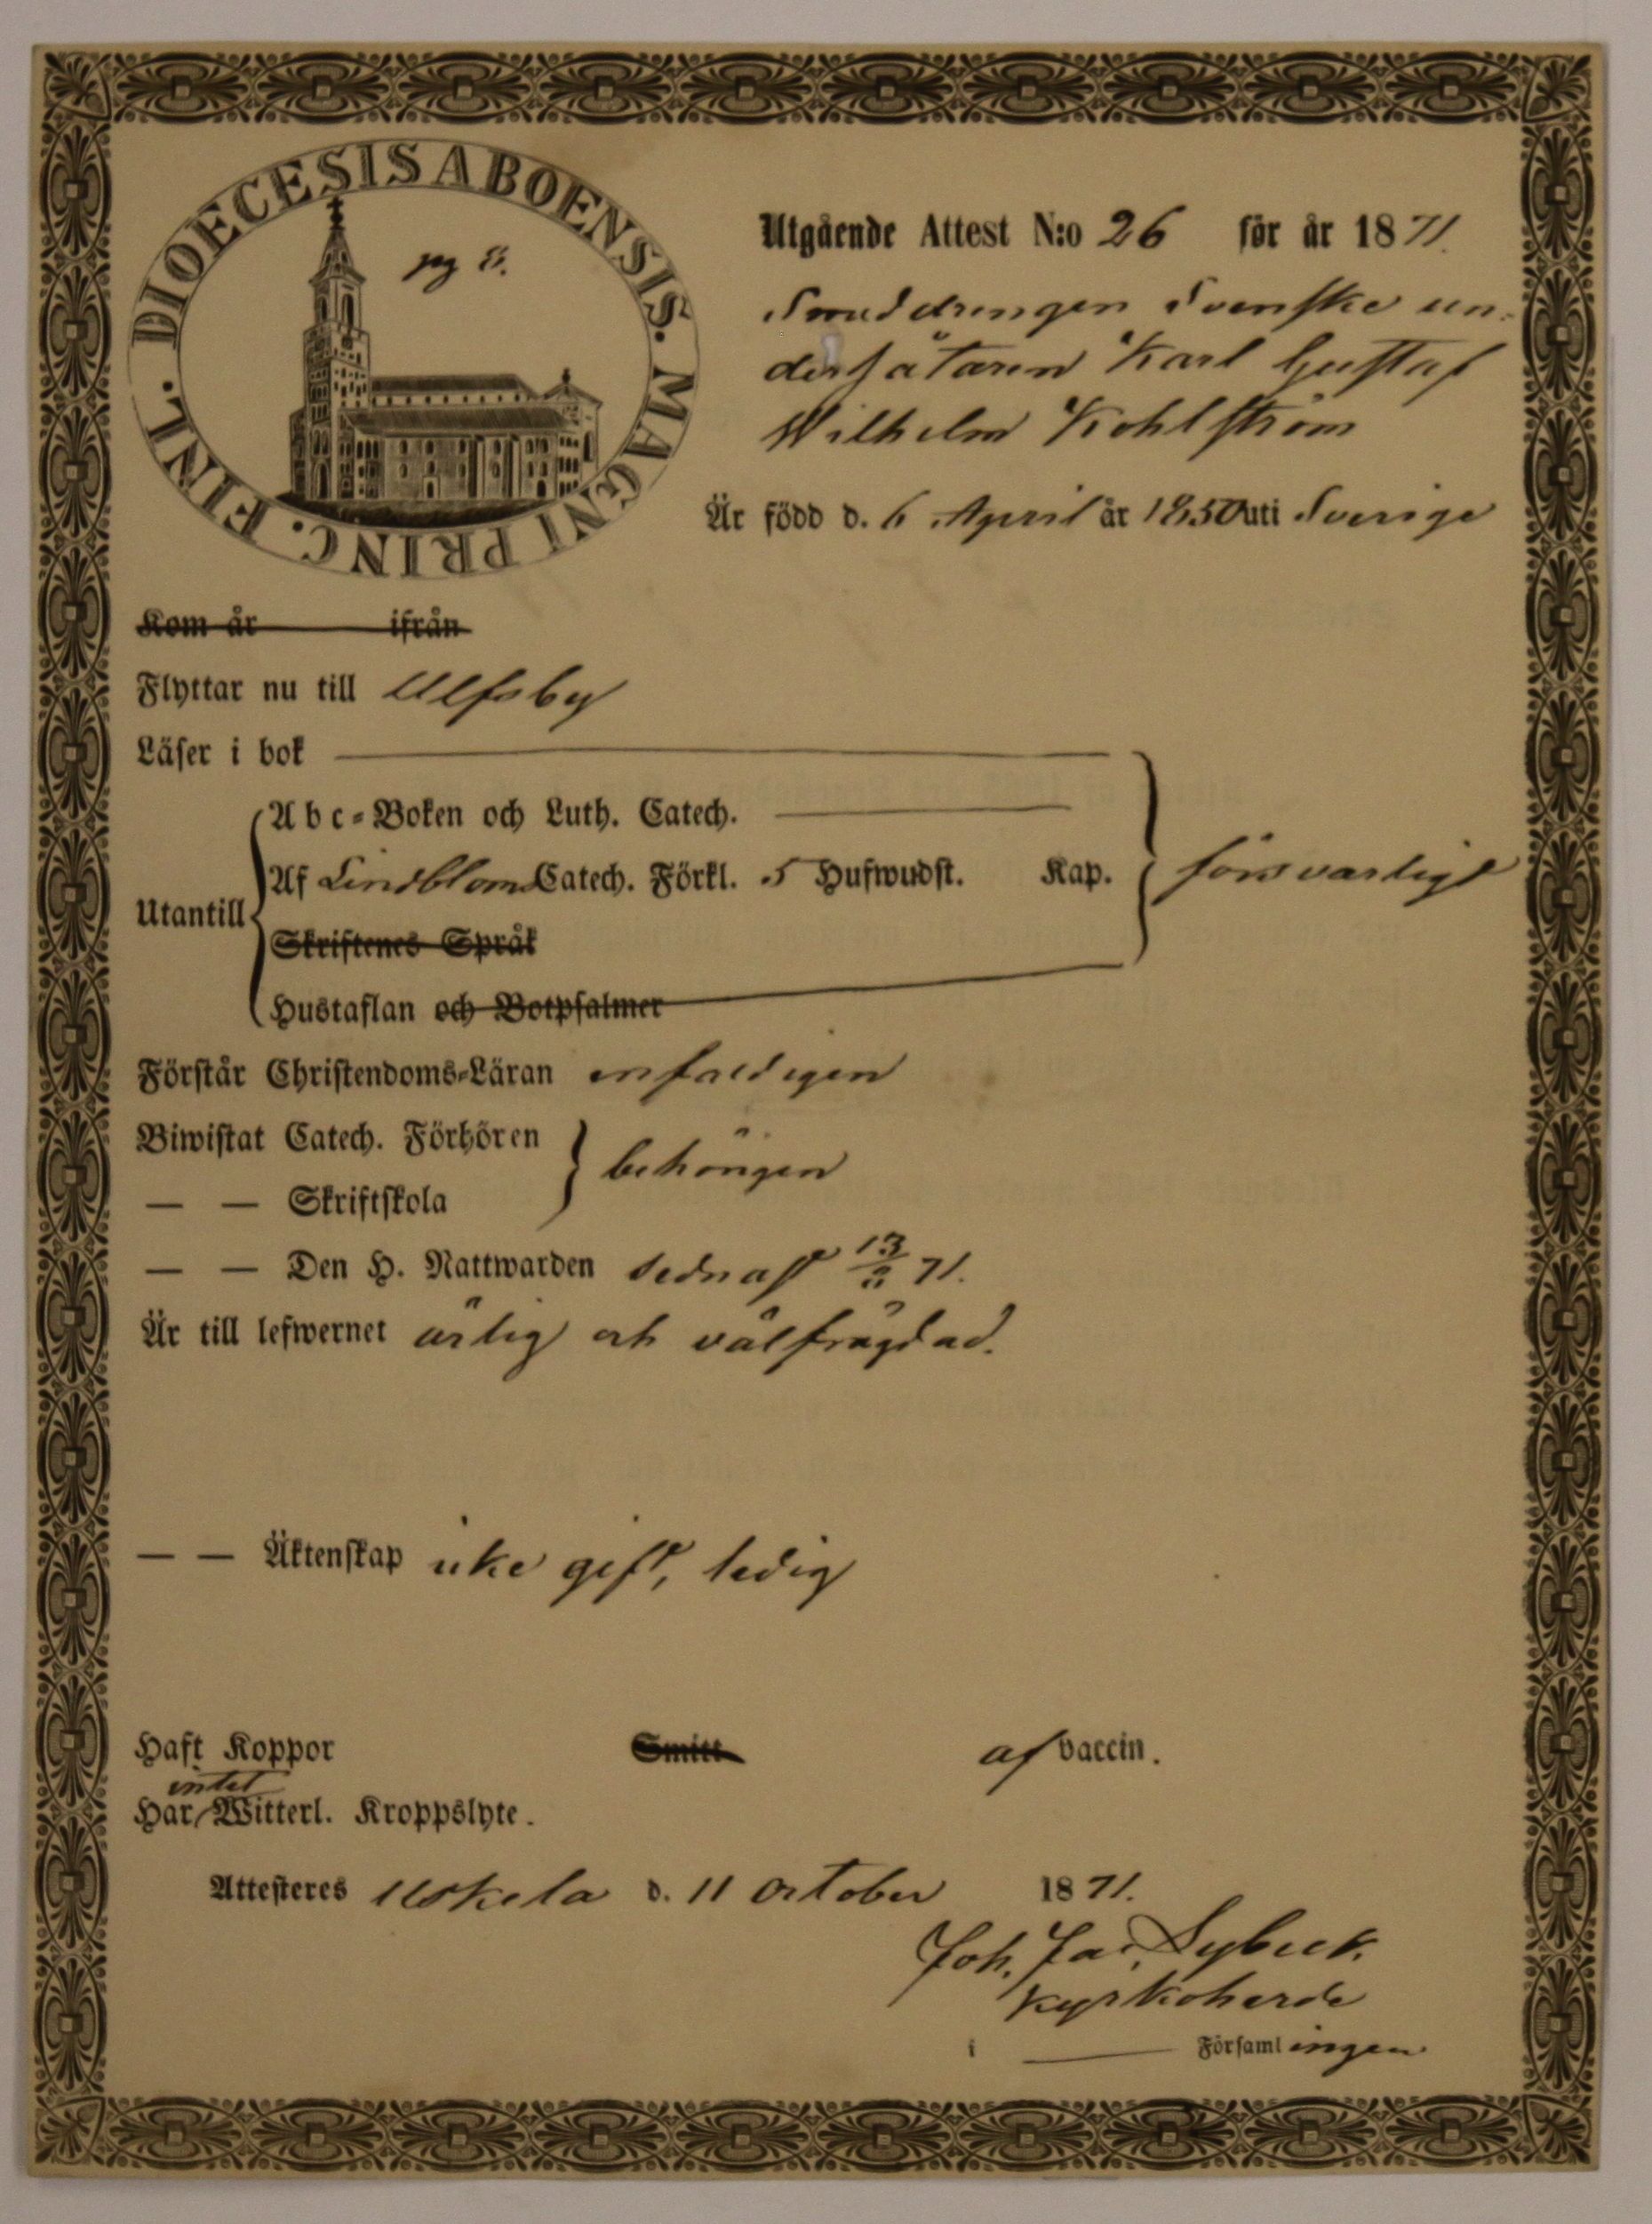 DIOECESIS ABOENSIS. MAGNI PRINC. FINL.
pag 8.
Utgående Attest N:o 26 för år 1871.
Smeddrengen Svenske un-
dersåtaren Karl Gustaf
Wilhelm Kohlström
Är född d. 6 April år 1850 uti Sverige
Kom år ifrån
Flyttar nu till Ulfsby
Läser i bok
Abc-Boken och Luth. Catech.
Utantill Af Lindbloms Catech. Förkl. 5 Hufwudst. Kap. försvarligt
Skriftenes Språk
Hustaflan och Botpsalmer
Förstår Christendoms-Läran enfaldigen
Biwistat Catech. Förhören
— — Skriftskola behörigen
— — Den H. Nattwarden sednast 13/8 71.
Är till lefwernet ärlig och välfrägdad.
— — Äktenskap icke gift, ledig
Haft Koppor Smitt af vaccin.
intet
Har Witterl. Kroppslyte.
Attesteres Uskela d. 11 October 1871.
Joh. Jac. Sybeck.
Kyrkoherde
i Församlingen